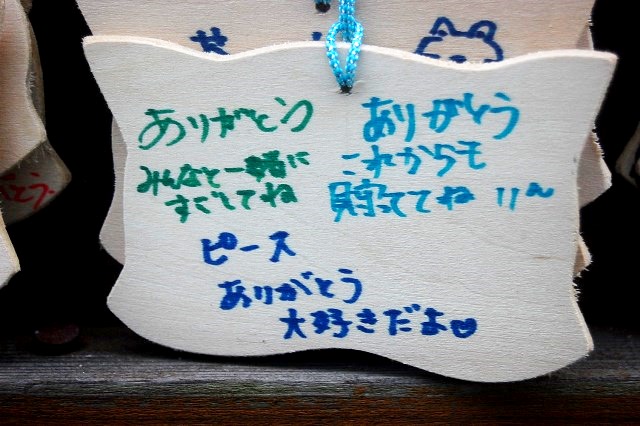 ありがとう
みんなと一緒に
すごしてね
ありがとう
これからも
見守っててね
ピース
ありがとう
大好きだよ♥